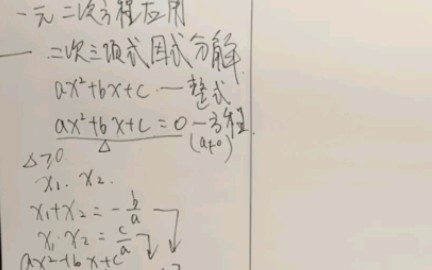 一元二次方程应用
一 二次三项式因式分解
ax²+bx+c — 整式
ax²+bx+c=0 — 方程
△ (a≠0)
△≥0
x₁. x₂.
x₁+x₂=-b/a
x₁·x₂=c/a
ax²+bx+c